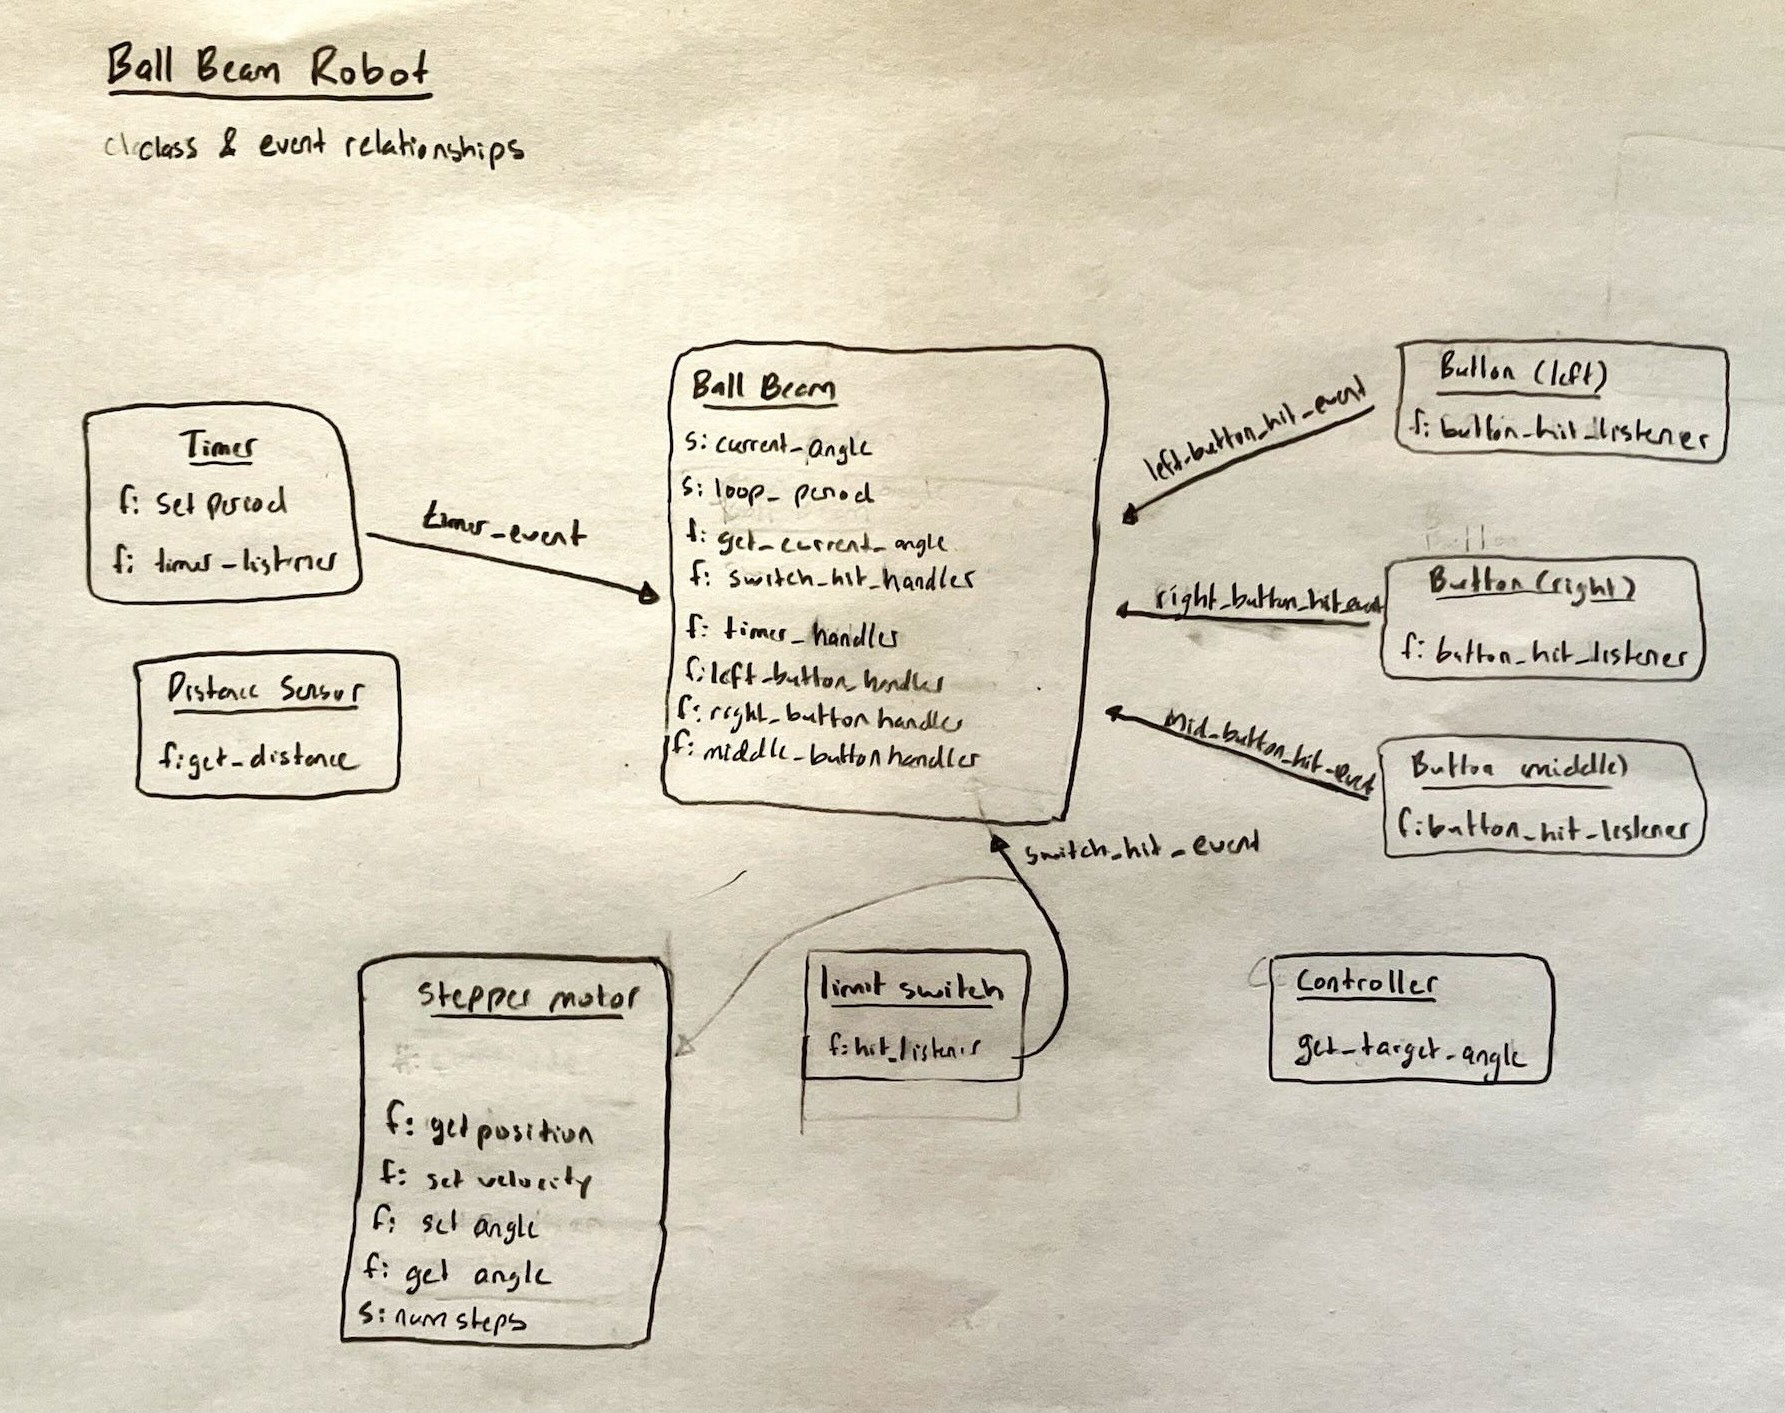 Ball Beam Robot
class & event relationships
Timer
f: set period
f: timer_listener
timer_event
Distance Sensor
f:get_distance
Ball Beam
s: current_angle
s: loop_period
f: get_current_angle
f: switch_hit_handler
f: timer_handler
f:left_button_handler
f: right_button handler
f: middle_button handler
left_button_hit_event
Button (left)
f: button_hit_listener
right_button_hit_event
Button (right)
f: button_hit_listener
Mid_button_hit_event
Button (middle)
f:button_hit_listener
switch_hit_event
Stepper motor
f: get position
f: set velocity
f: set angle
f: get angle
s: num steps
limit switch
f: hit_listener
Controller
get_target_angle